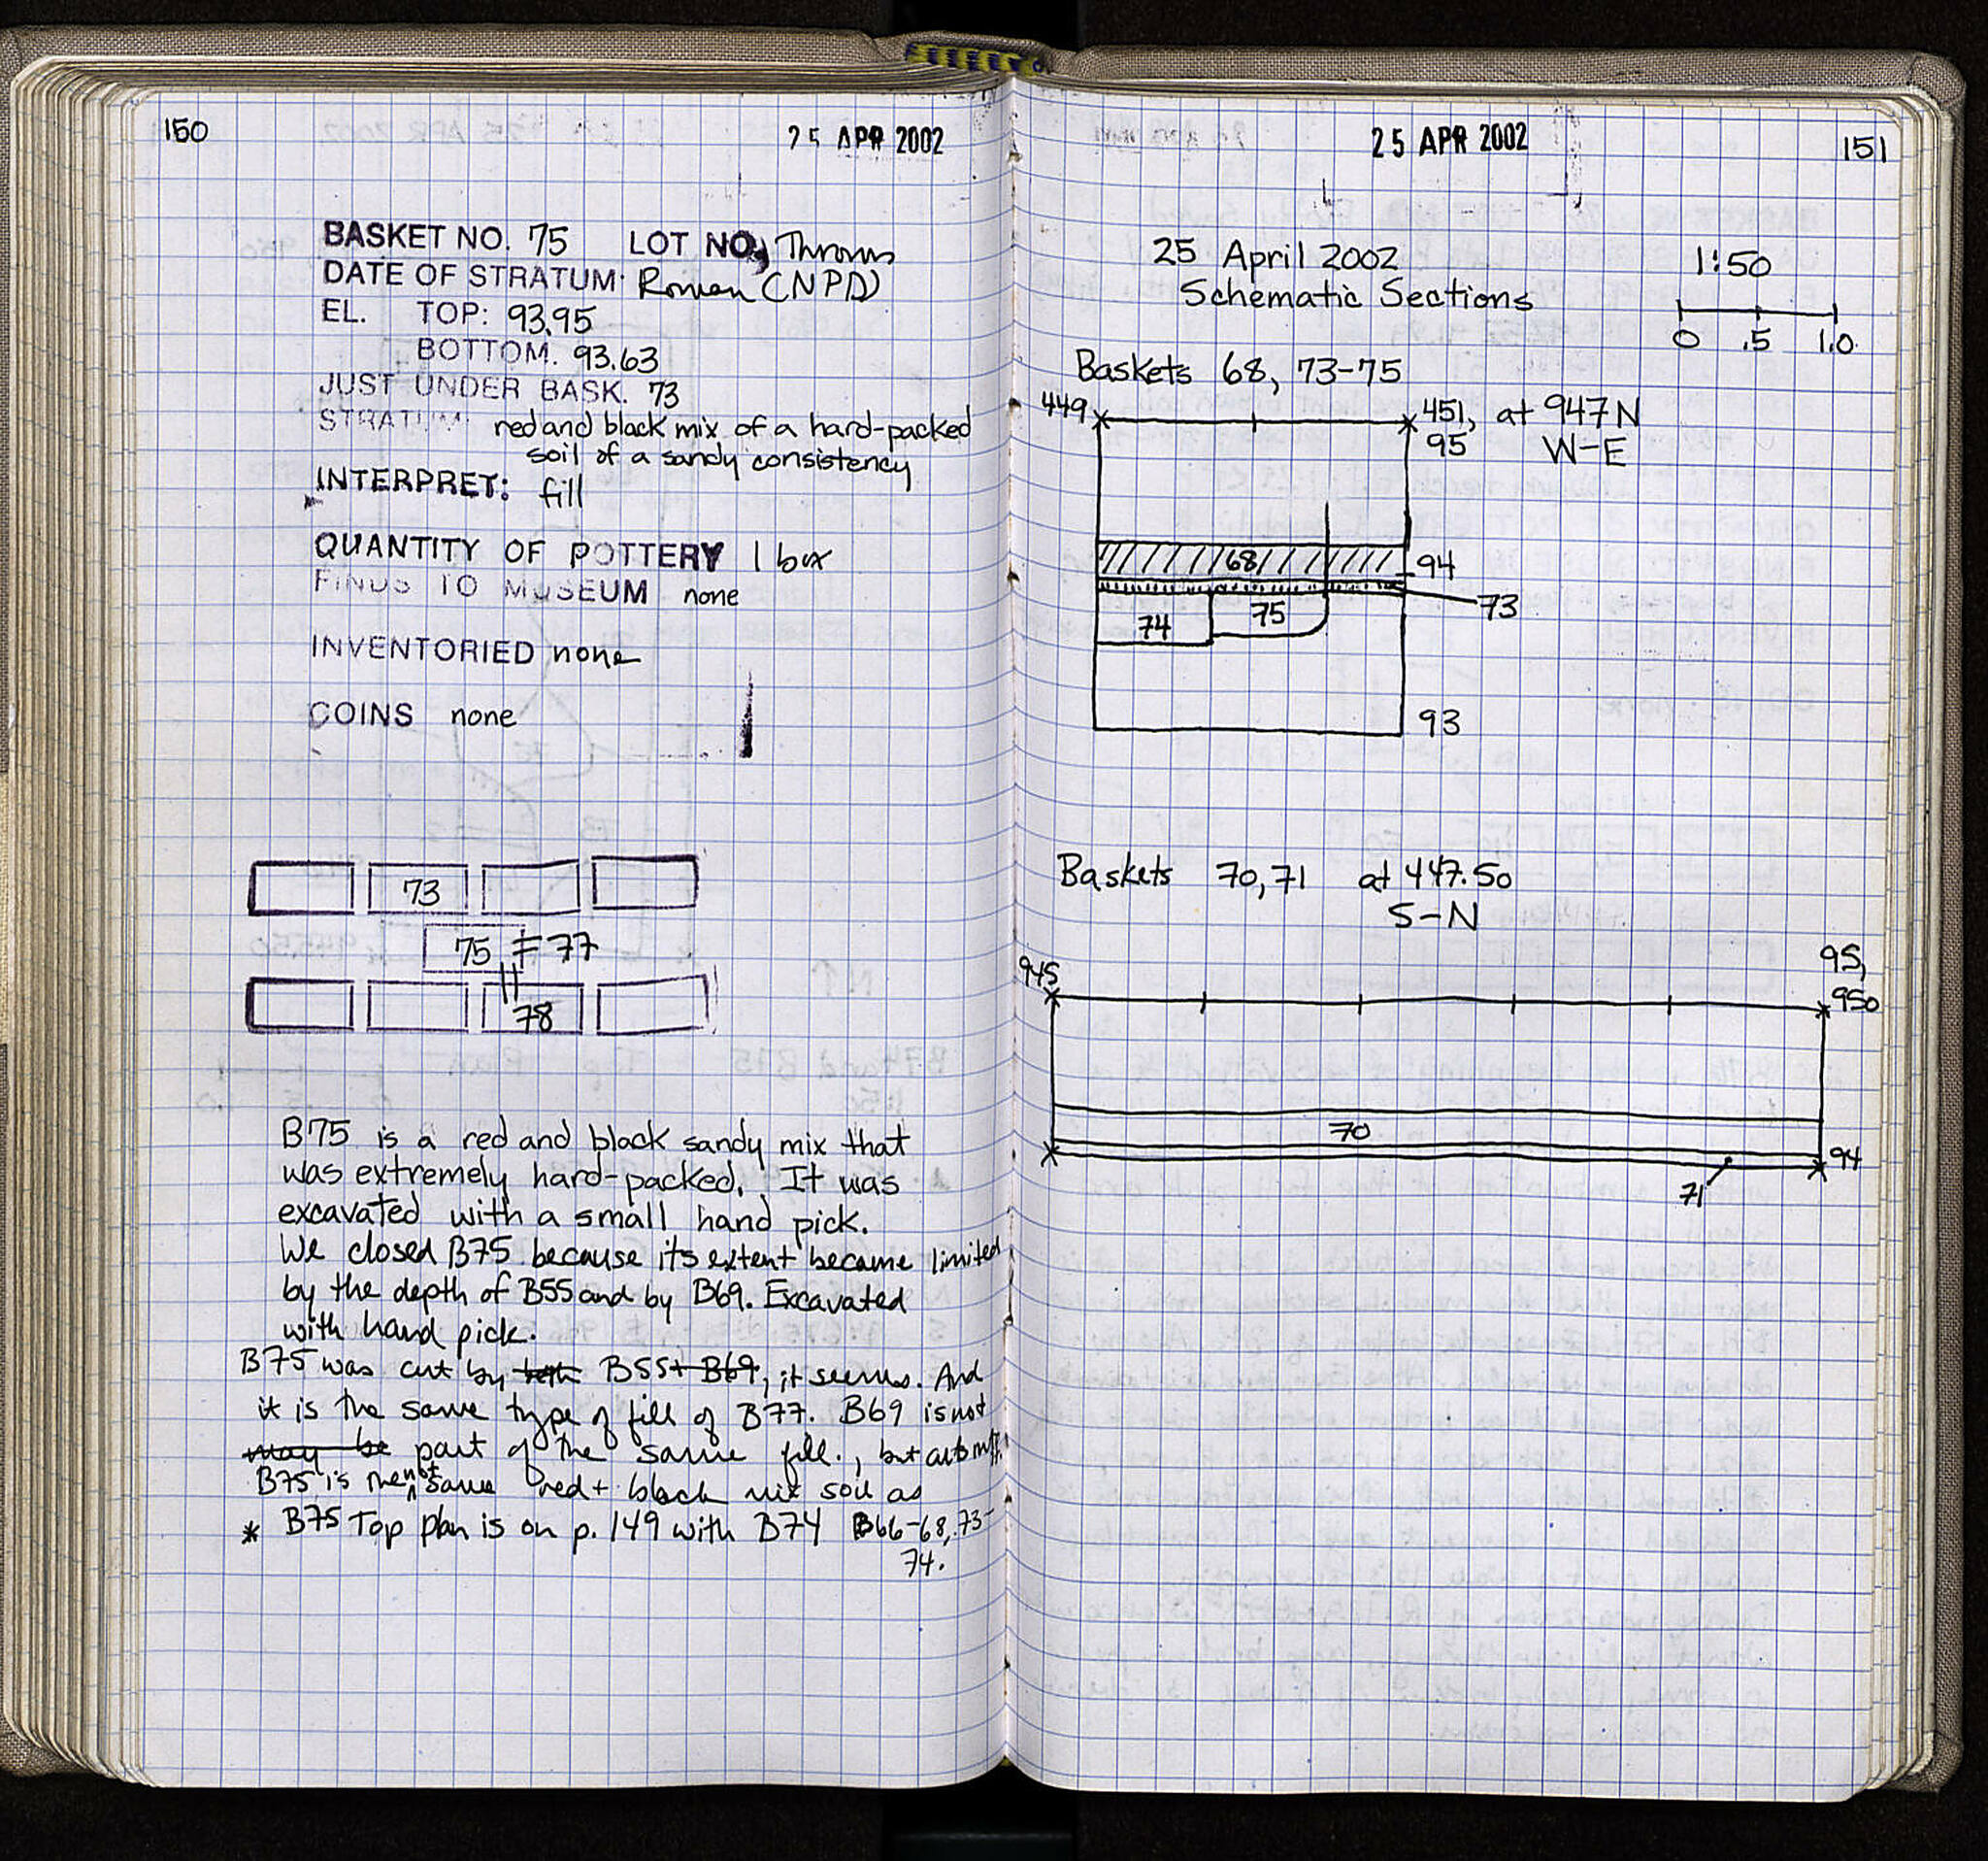 150
25 APR 2002
BASKET NO. 75 LOT NO, Thrown
DATE OF STRATUM: Roman (NPD)
EL. TOP: 93.95
BOTTOM. 93.63
JUST UNDER BASK. 73
STRATUM red and black mix of a hard-packed
soil of a sandy consistency
INTERPRET: fill
QUANTITY OF POTTERY 1 box
FINDS TO MUSEUM none
INVENTORIED none
COINS none
73
75 = 77
78
B75 is a red and black sandy mix that
was extremely hard-packed. It was
excavated with a small hand pick.
We closed B75 because its extent became limited
by the depth of B55 and by B69. Excavated
with hand pick.
B75 was cut by both B55+ B69, it seems. And
it is the same type of fill of B77. B69 is not
may be part of the same fill., but cuts
B75 is the not same red + black mix soil as
* B75 Top plan is on p. 149 with B74 B66-68, 73-
74.
25 APR 2002
151
25 April 2002
Schematic Sections
1:50
0 .5 1.0
Baskets 68, 73-75
449 451, at 947N
95 W-E
68
94
73
74 75
93
Baskets 70, 71 at 447.50
S-N
945 95,
950
70
94
71